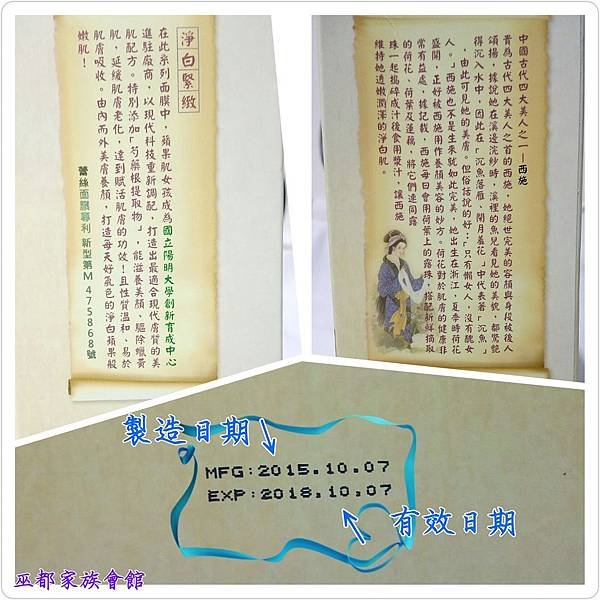 淨白緊緻
在此系列面膜中，蘋果肌女孩成為國立陽明大學創新育成中心
進駐廠商，以現代科技重新調配，打造出最適合現代膚質的美
肌配方。特別添加「芍藥根提取物」，能滋養美顏、驅除蠟黃
肌，延緩肌膚老化，達到賦活肌膚的功效！且性質溫和、易於
肌膚吸收。由內而外美膚養顏，打造每天好氣色的淨白蘋果般
嫩肌！
蕾絲面膜專利 新型第M 475868號
中國古代四大美人之一—西施
貴為古代四大美人之首的西施，她絕世完美的容顏與身段被後人
頌揚，據說她在溪邊浣紗時，溪裡的魚兒看見她的美貌，都驚艷
得沉入水中，因此在「沉魚落雁、閉月羞花」中代表著「沉魚」
，由此可見她的美膚。但俗話說的好：「只有懶女人，沒有醜女
人。」西施也不是生來就如此完美，她出生在浙江，夏季時荷花
盛開，正好被西施用作養顏美容的妙方。荷花對於肌膚的健康非
常有益處，據記載，西施每日會用荷葉上的露珠，搭配新鮮摘取
的荷花、荷葉及蓮藕，將它們連同露
珠一起搗碎成汁後食用漿汁，讓西施
維持她透嫩潤澤的淨白肌。
製造日期
MFG:2015.10.07
EXP:2018.10.07
有效日期
巫都家族會館